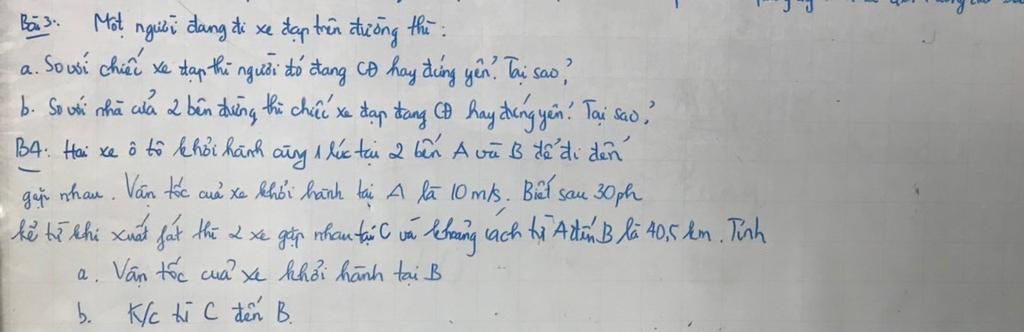 Bài 3: Một người đang đi xe đạp trên đường thì:
a. So với chiếc xe đạp thì người đó đang CĐ hay đứng yên? Tại sao?
b. So với nhà cửa 2 bên đường thì chiếc xe đạp đang CĐ hay đứng yên? Tại sao?
B4: Hai xe ô tô khởi hành cùng 1 lúc tại 2 bến A và B để đi đến
gặp nhau. Vận tốc của xe khởi hành tại A là 10 m/s. Biết sau 30ph
kể từ khi xuất fát thì 2 xe gặp nhau tại C và khoảng cách từ A đến B là 40,5 km. Tính
a. Vận tốc của xe khởi hành tại B
b. K/c từ C đến B.